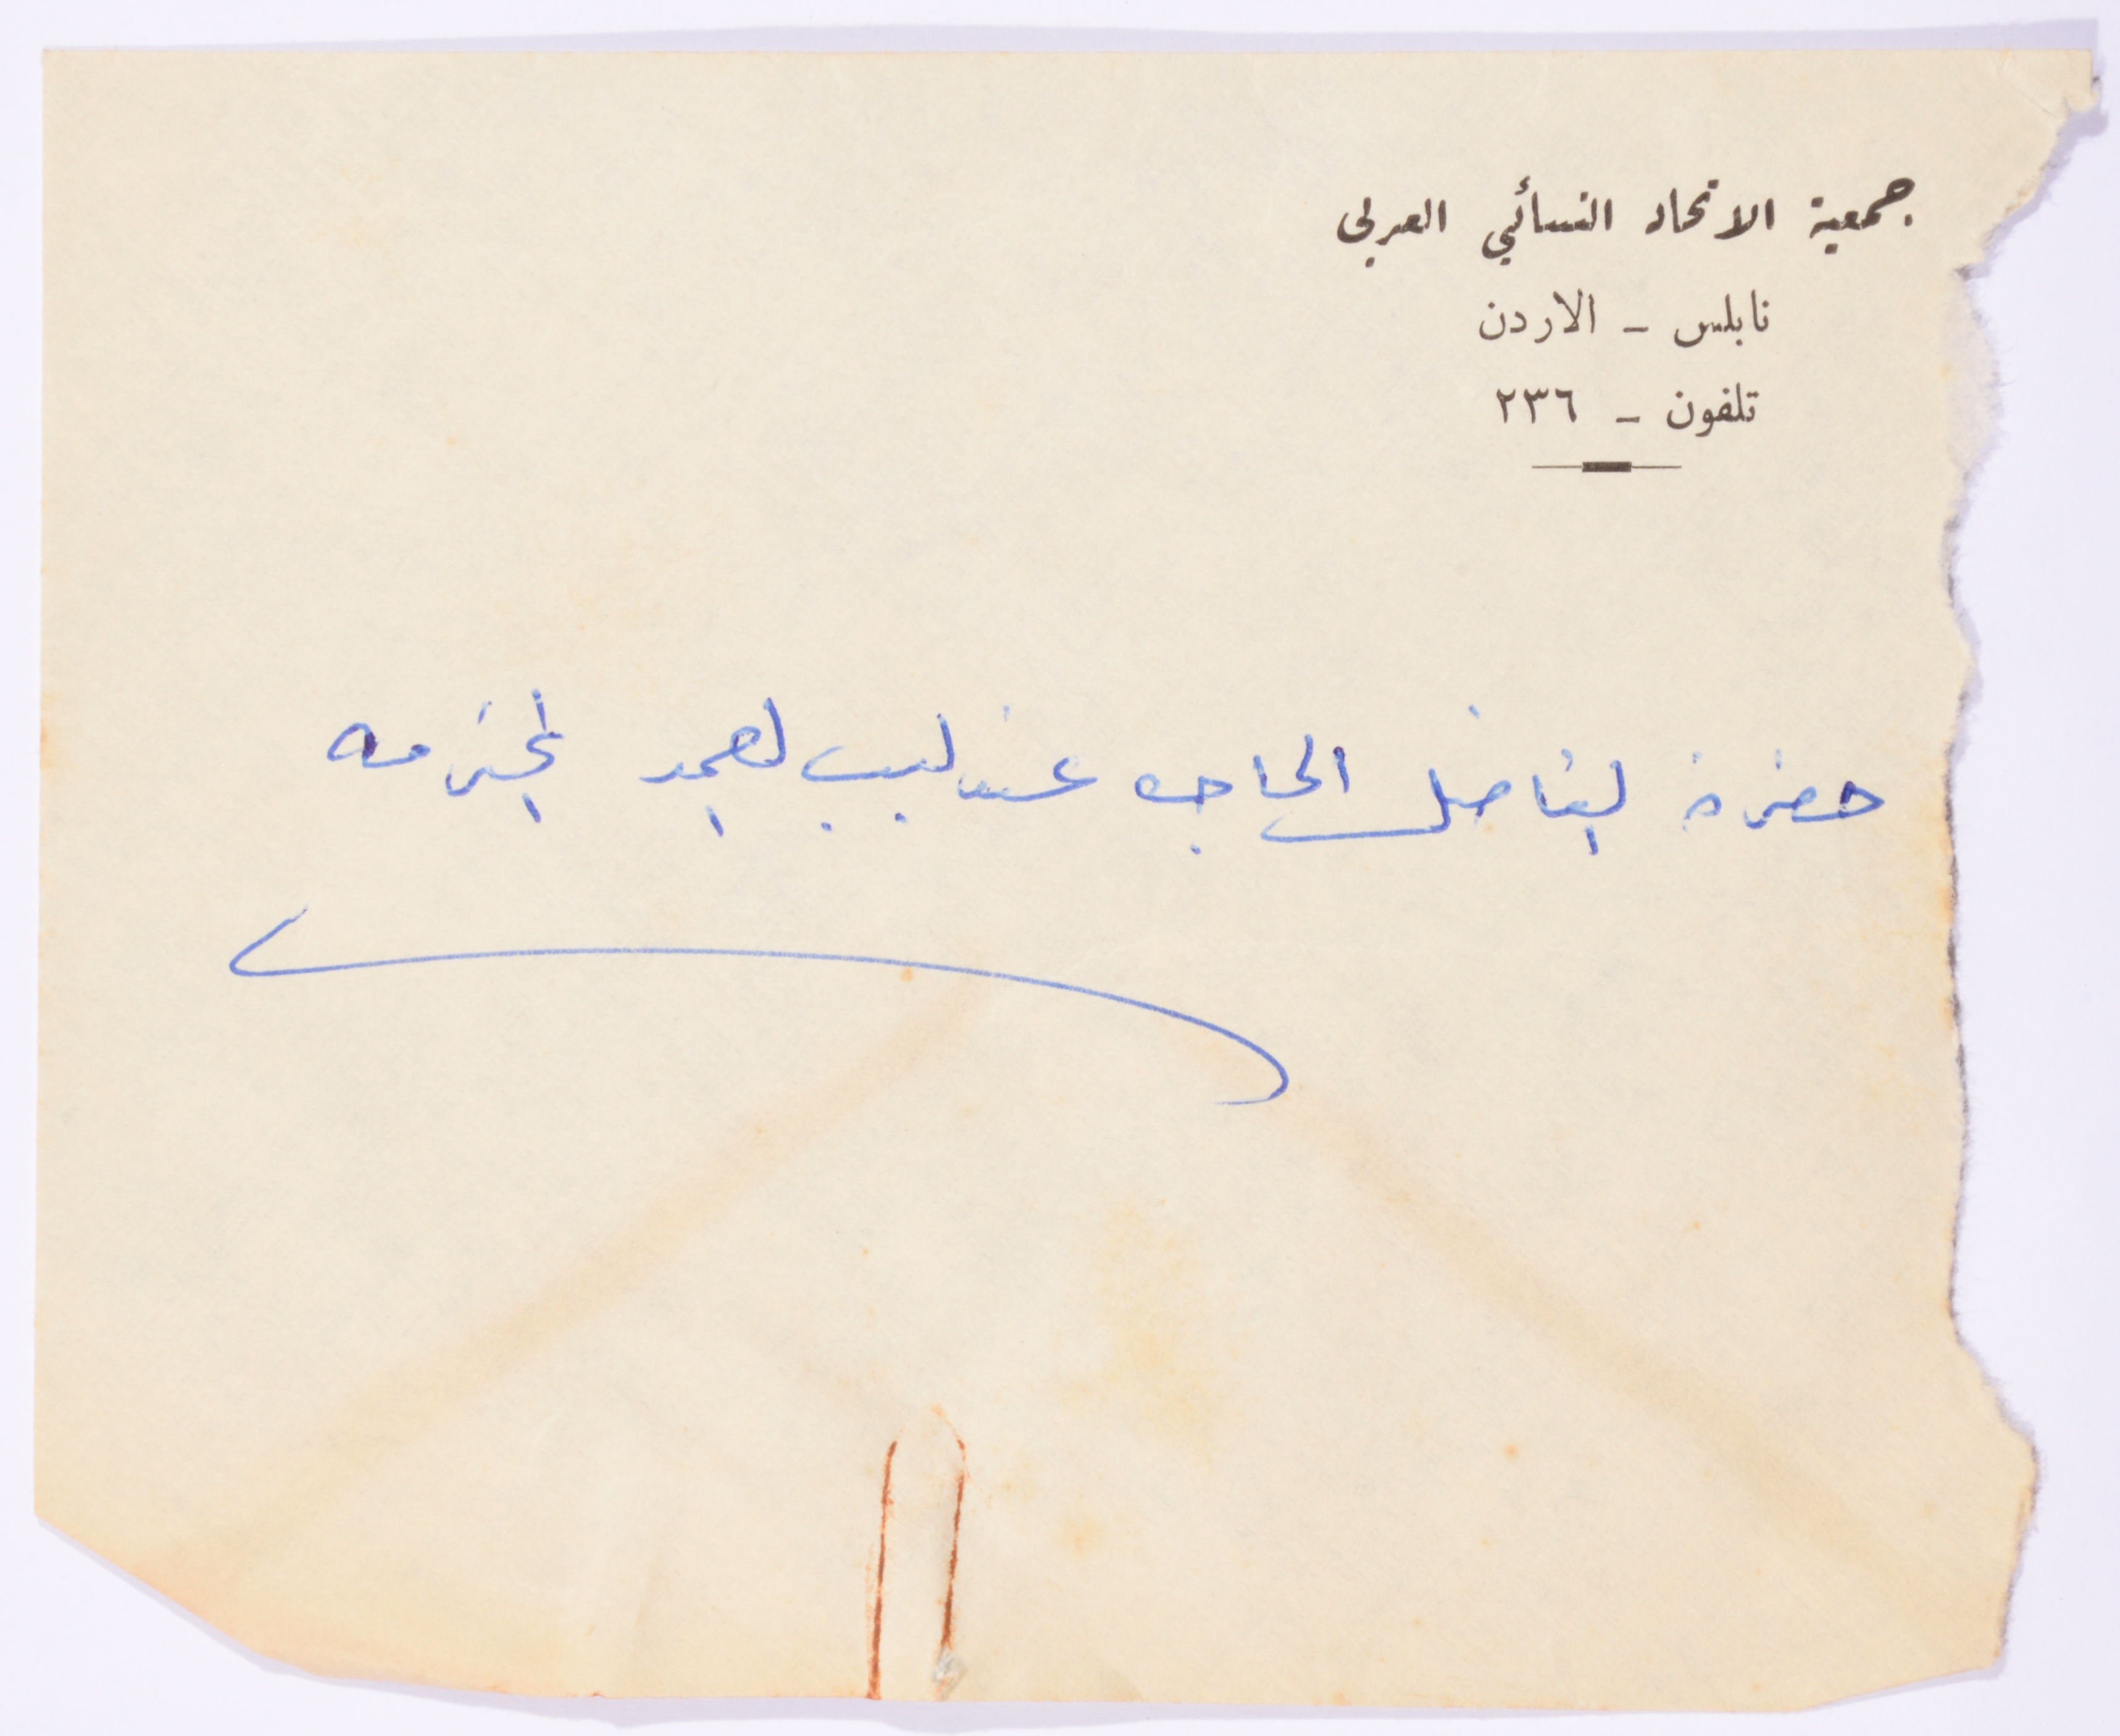 جمعية الاتحاد النسائي العربي
نابلس - الاردن
تلفون - ٢٣٦
حضرة الفاضلة الحاجه عندليب العمد المحترمه